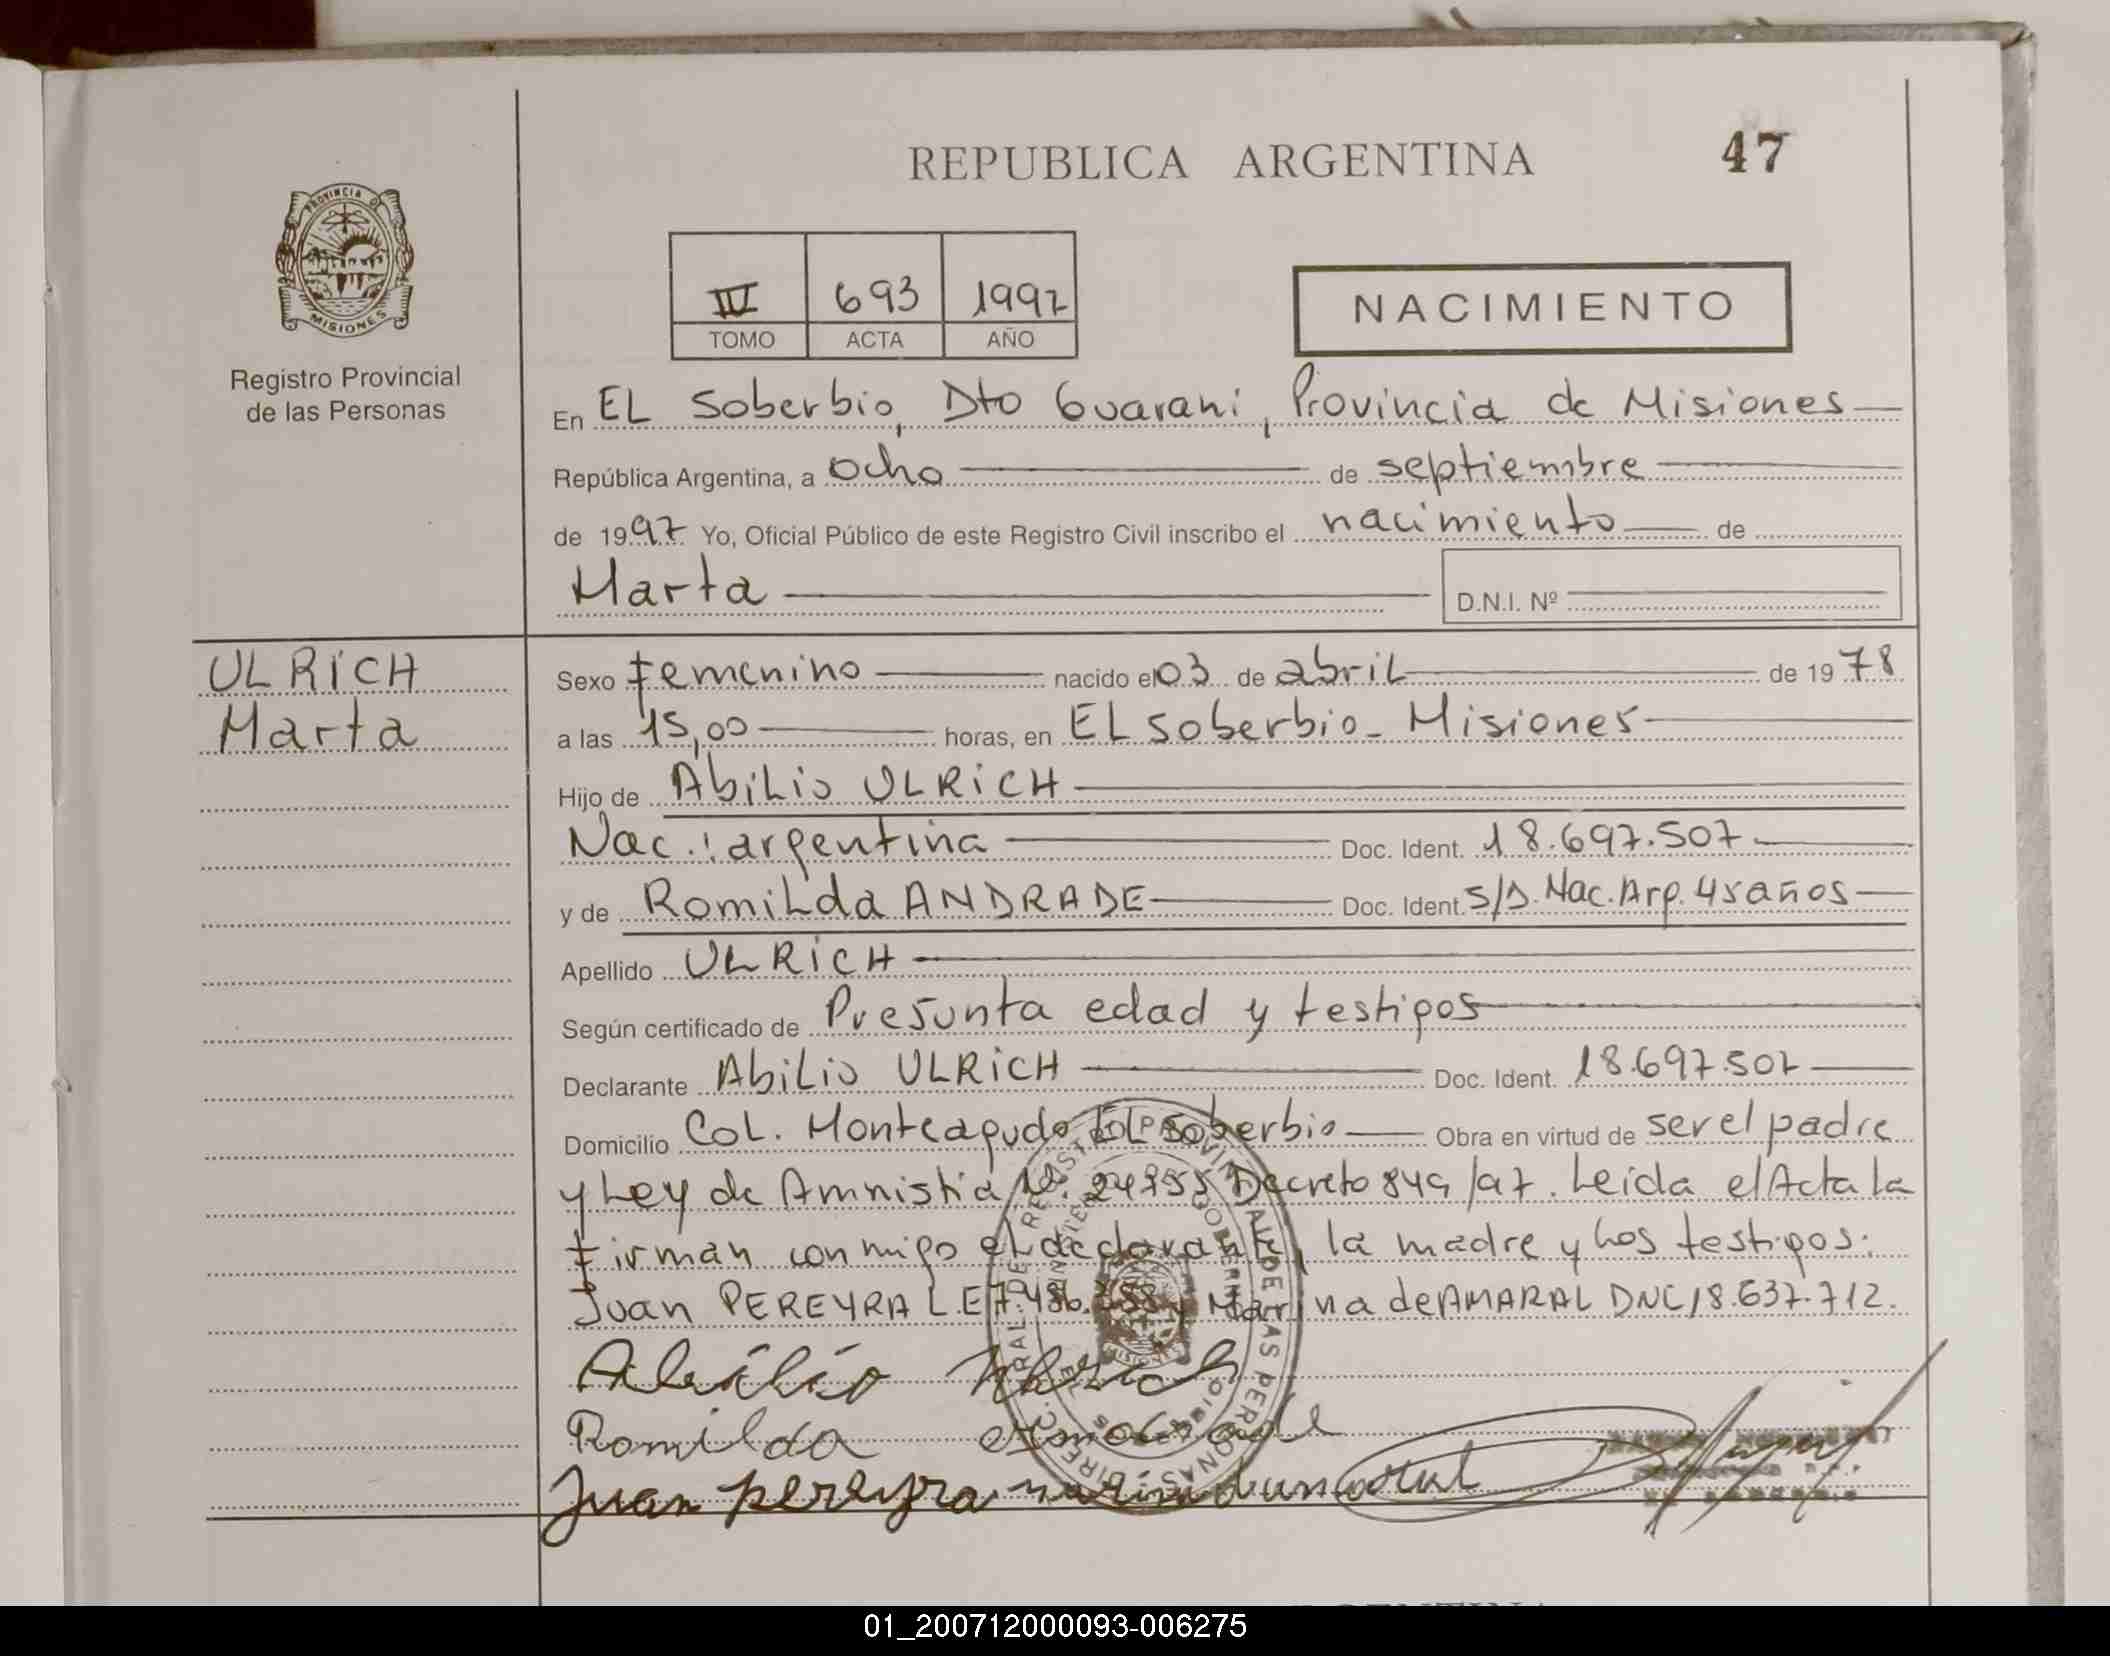 REPUBLICA ARGENTINA
47
PROVINCIA DE
MISIONES
Registro Provincial
de las Personas
IV 693 1997
TOMO ACTA AÑO
NACIMIENTO
En EL Soberbio, Dto Guarani, Provincia de Misiones
República Argentina, a ocho de septiembre
de 1997 Yo, Oficial Público de este Registro Civil inscribo el nacimiento de
Marta D.N.I. Nº
ULRICH
Marta
Sexo femenino nacido el 03 de abril de 1978
a las 15,00 horas, en EL Soberbio - Misiones
Hijo de Abilio ULRICH
Nac.: argentina Doc. Ident. 18.697.507
y de Romilda ANDRADE Doc. Ident. S/D. Nac. Arg. 45 años
Apellido ULRICH
Según certificado de Presunta edad y testigos
Declarante Abilio ULRICH Doc. Ident. 18.697.507
Domicilio Col. Monteagudo EL Soberbio Obra en virtud de ser el padre
y Ley de Amnistia Nº. 24755 Decreto 849/97. Leida el Acta la
firman conmigo el declarante, la madre y los testigos:
Juan PEREYRA L.E 7.486. y Marina de AMARAL DNC 18.637.712.
Abilio Ulrich
Romilda Andrade
Juan pereyra
01_200712000093-006275